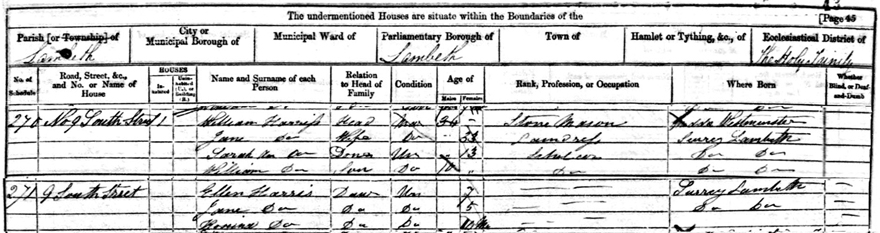 The undermentioned Houses are situate within the Boundaries of the
[Page 45
Parish [or Township] of City or Municipal Borough of Municipal Ward of Parliamentary Borough of Town of Hamlet or Tything, &c., of Ecclesiastical District of
Lambeth Lambeth The Holy Trinity
No. of Schedule Road, Street, &c., and No. or Name of House HOUSES Inhabited Uninhabited (U.), or Building (B.) Name and Surname of each Person Relation to Head of Family Condition Age of Males Females Rank, Profession, or Occupation Where Born Whether Blind, or Deaf-and-Dumb
270 No 9 South Street 1 William Harris Head Mar Stone Mason Westminster
Jane Do Wife Do Laundress Surrey Lambeth
Sarah Do Daur Un 13 Scholar Do Do
William Do Son Do 10 Do Do Do
271 9 South Street Ellen Harris Daur Un 7 Surrey Lambeth
Jane Do Do Do 5 Do Do
Do Do Do